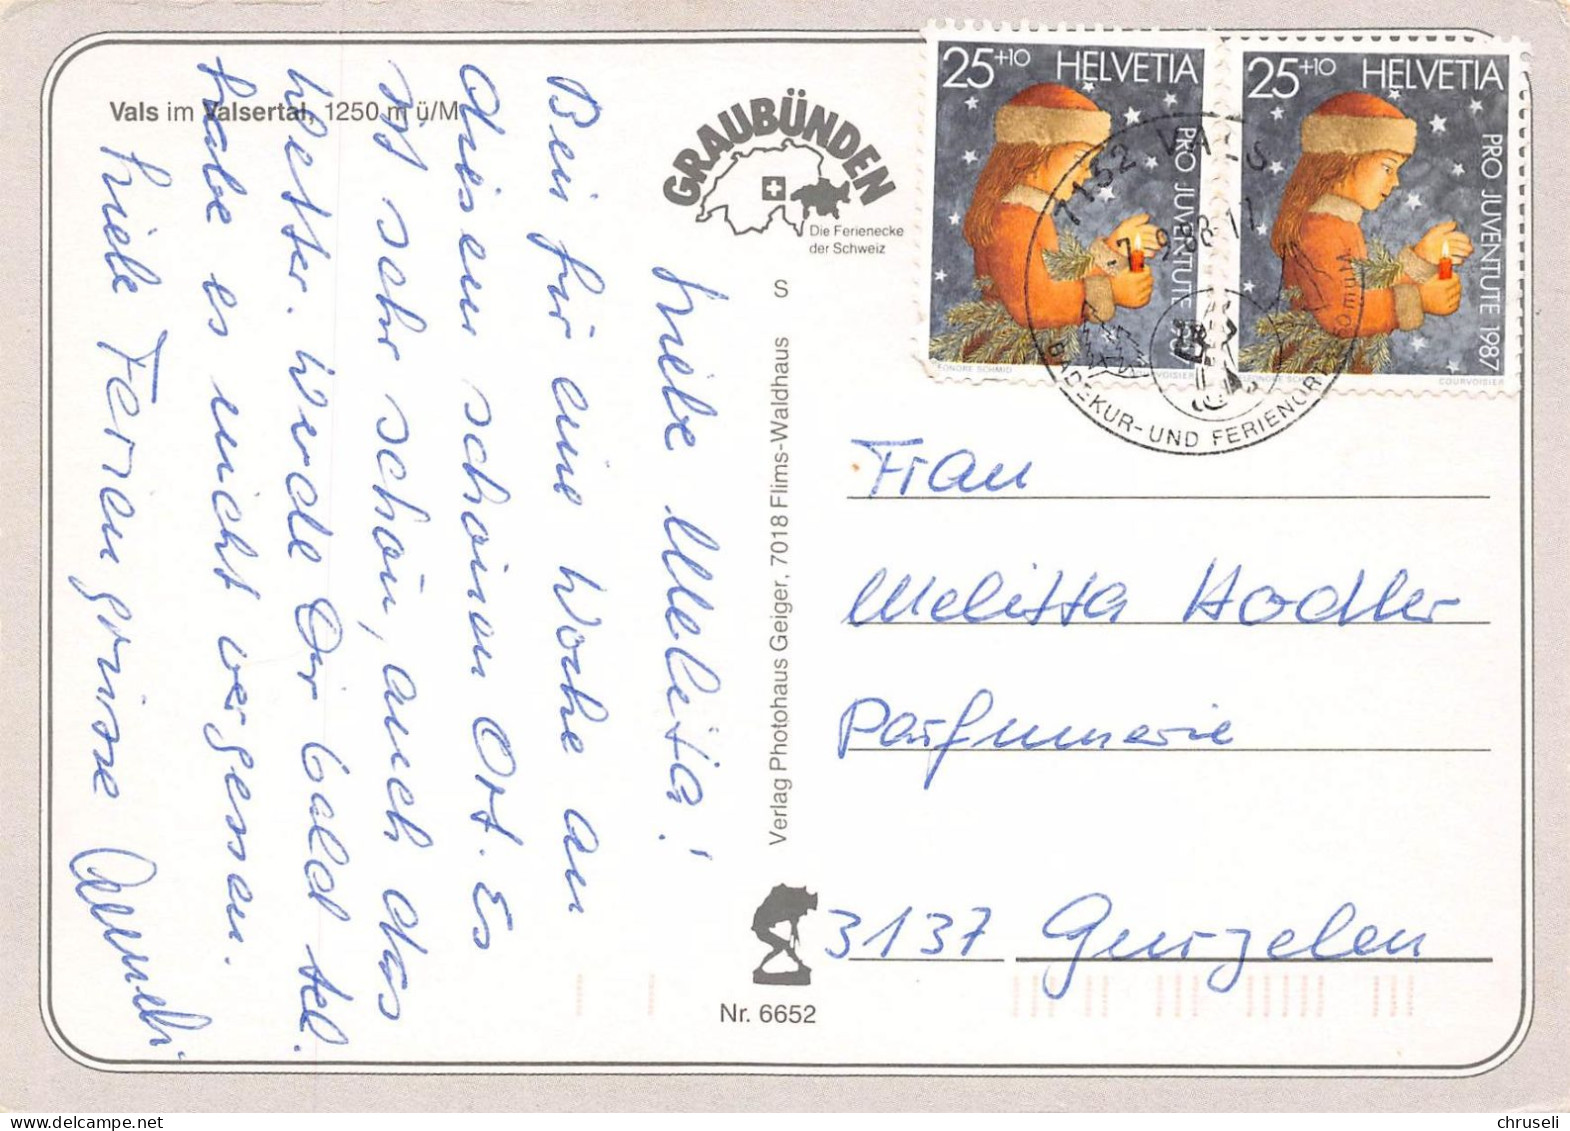 Vals im Valsertal, 1250 m ü/M
GRAUBÜNDEN
Die Ferienecke
der Schweiz
S
Verlag Photohaus Geiger, 7018 Flims-Waldhaus
Nr. 6652
25+10 HELVETIA
PRO JUVENTUTE 1987
COURVOISIER
25+10 HELVETIA
PRO JUVENTUTE 1987
7132 VALS
-7.9.88-17
BADEKUR- UND FERIENORT
Liebe Melita!
Bin für eine Woche an
diesem schönen Ort. Es
ist sehr schön, auch das
Wetter. Werde Dir bald tel.
habe es nicht vergessen.
Liebe Feriengrüsse
Frau
Melitta Hodler
Parfumerie
3137 Gurzelen
chruseli